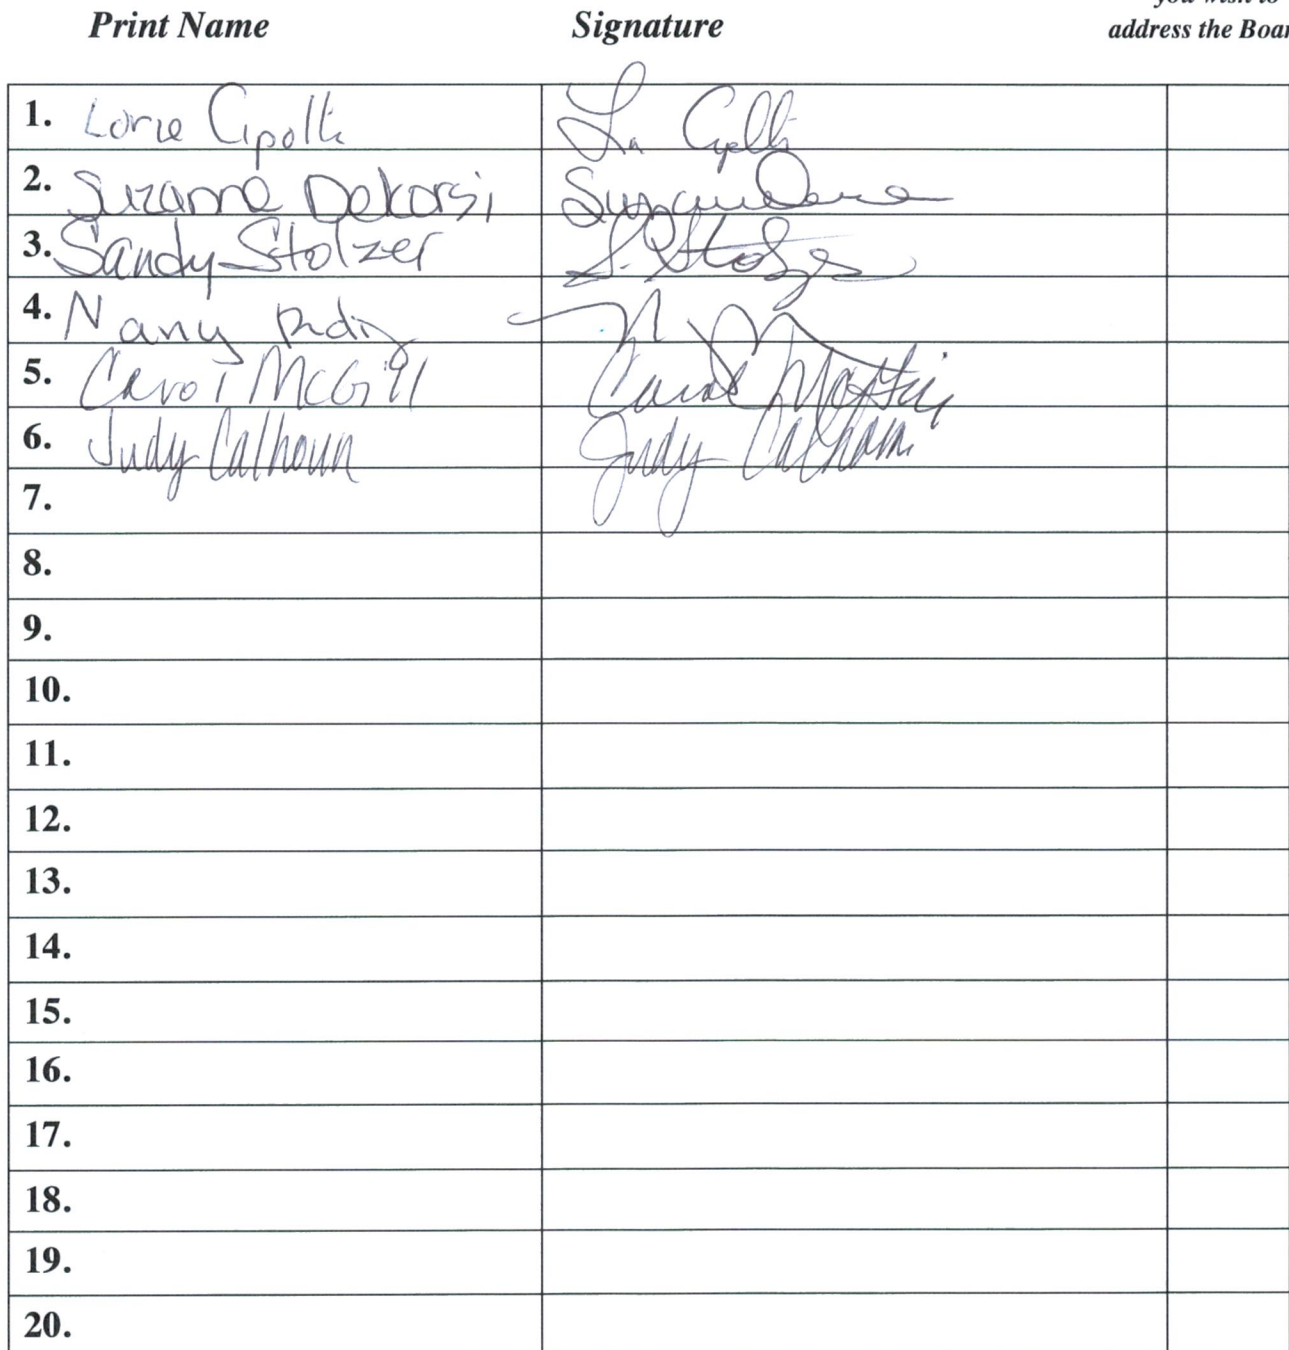 you wish to
Print Name Signature address the Boar
1. Lorie Cipolli
2. Suzanne Dekorsi
3. Sandy Stolzer S. Stolzer
4. Nancy
5. Carol McGill Carol
6. Judy Calhoun Judy Calhoun
7.
8.
9.
10.
11.
12.
13.
14.
15.
16.
17.
18.
19.
20.